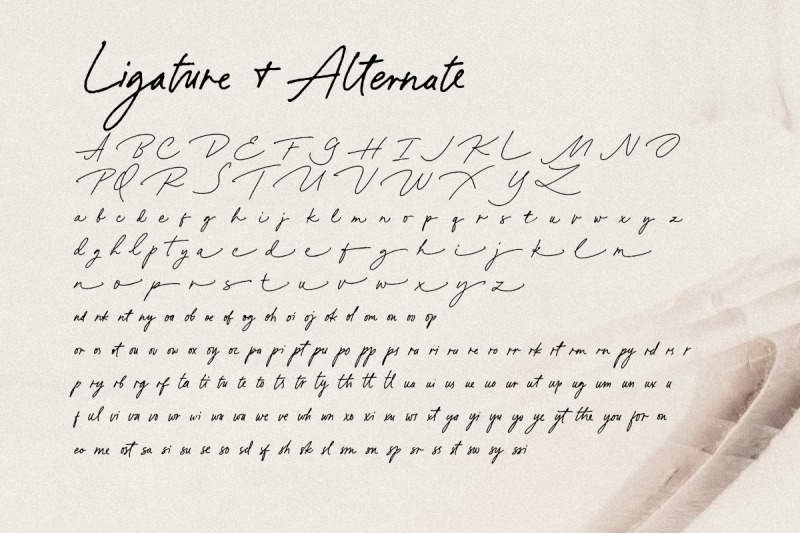 Ligature + Alternate
A B C D E F G H I J K L M N O
P Q R S T U V W X Y Z
a b c d e f g h i j k l m n o p q r s t u v w x y z
d g h l p t y a c d e f g h i j k l m
n o p r s t u v w x y z
nd nk nt ny oa ob oe of og oh oi oj ok ol om on oo op
or os ot ou ov ow ox oy oz pa pi pt pu po pp ps ra ri ru re ro rr rk rt rm rn py rd rs r
p ry rb rg rf ta ti tu te to ts tr ty th tt tl ua ui us ue uo ur ut up ug um un ux u
f ul vi va vo wr wi wa wa we ve wh wn xo xi xu ws xt ya yi yu yo ye yt the you for on
eo me ost sa si su se so sd sf sh sk sl sm on sp sr ss st sw sy ssi